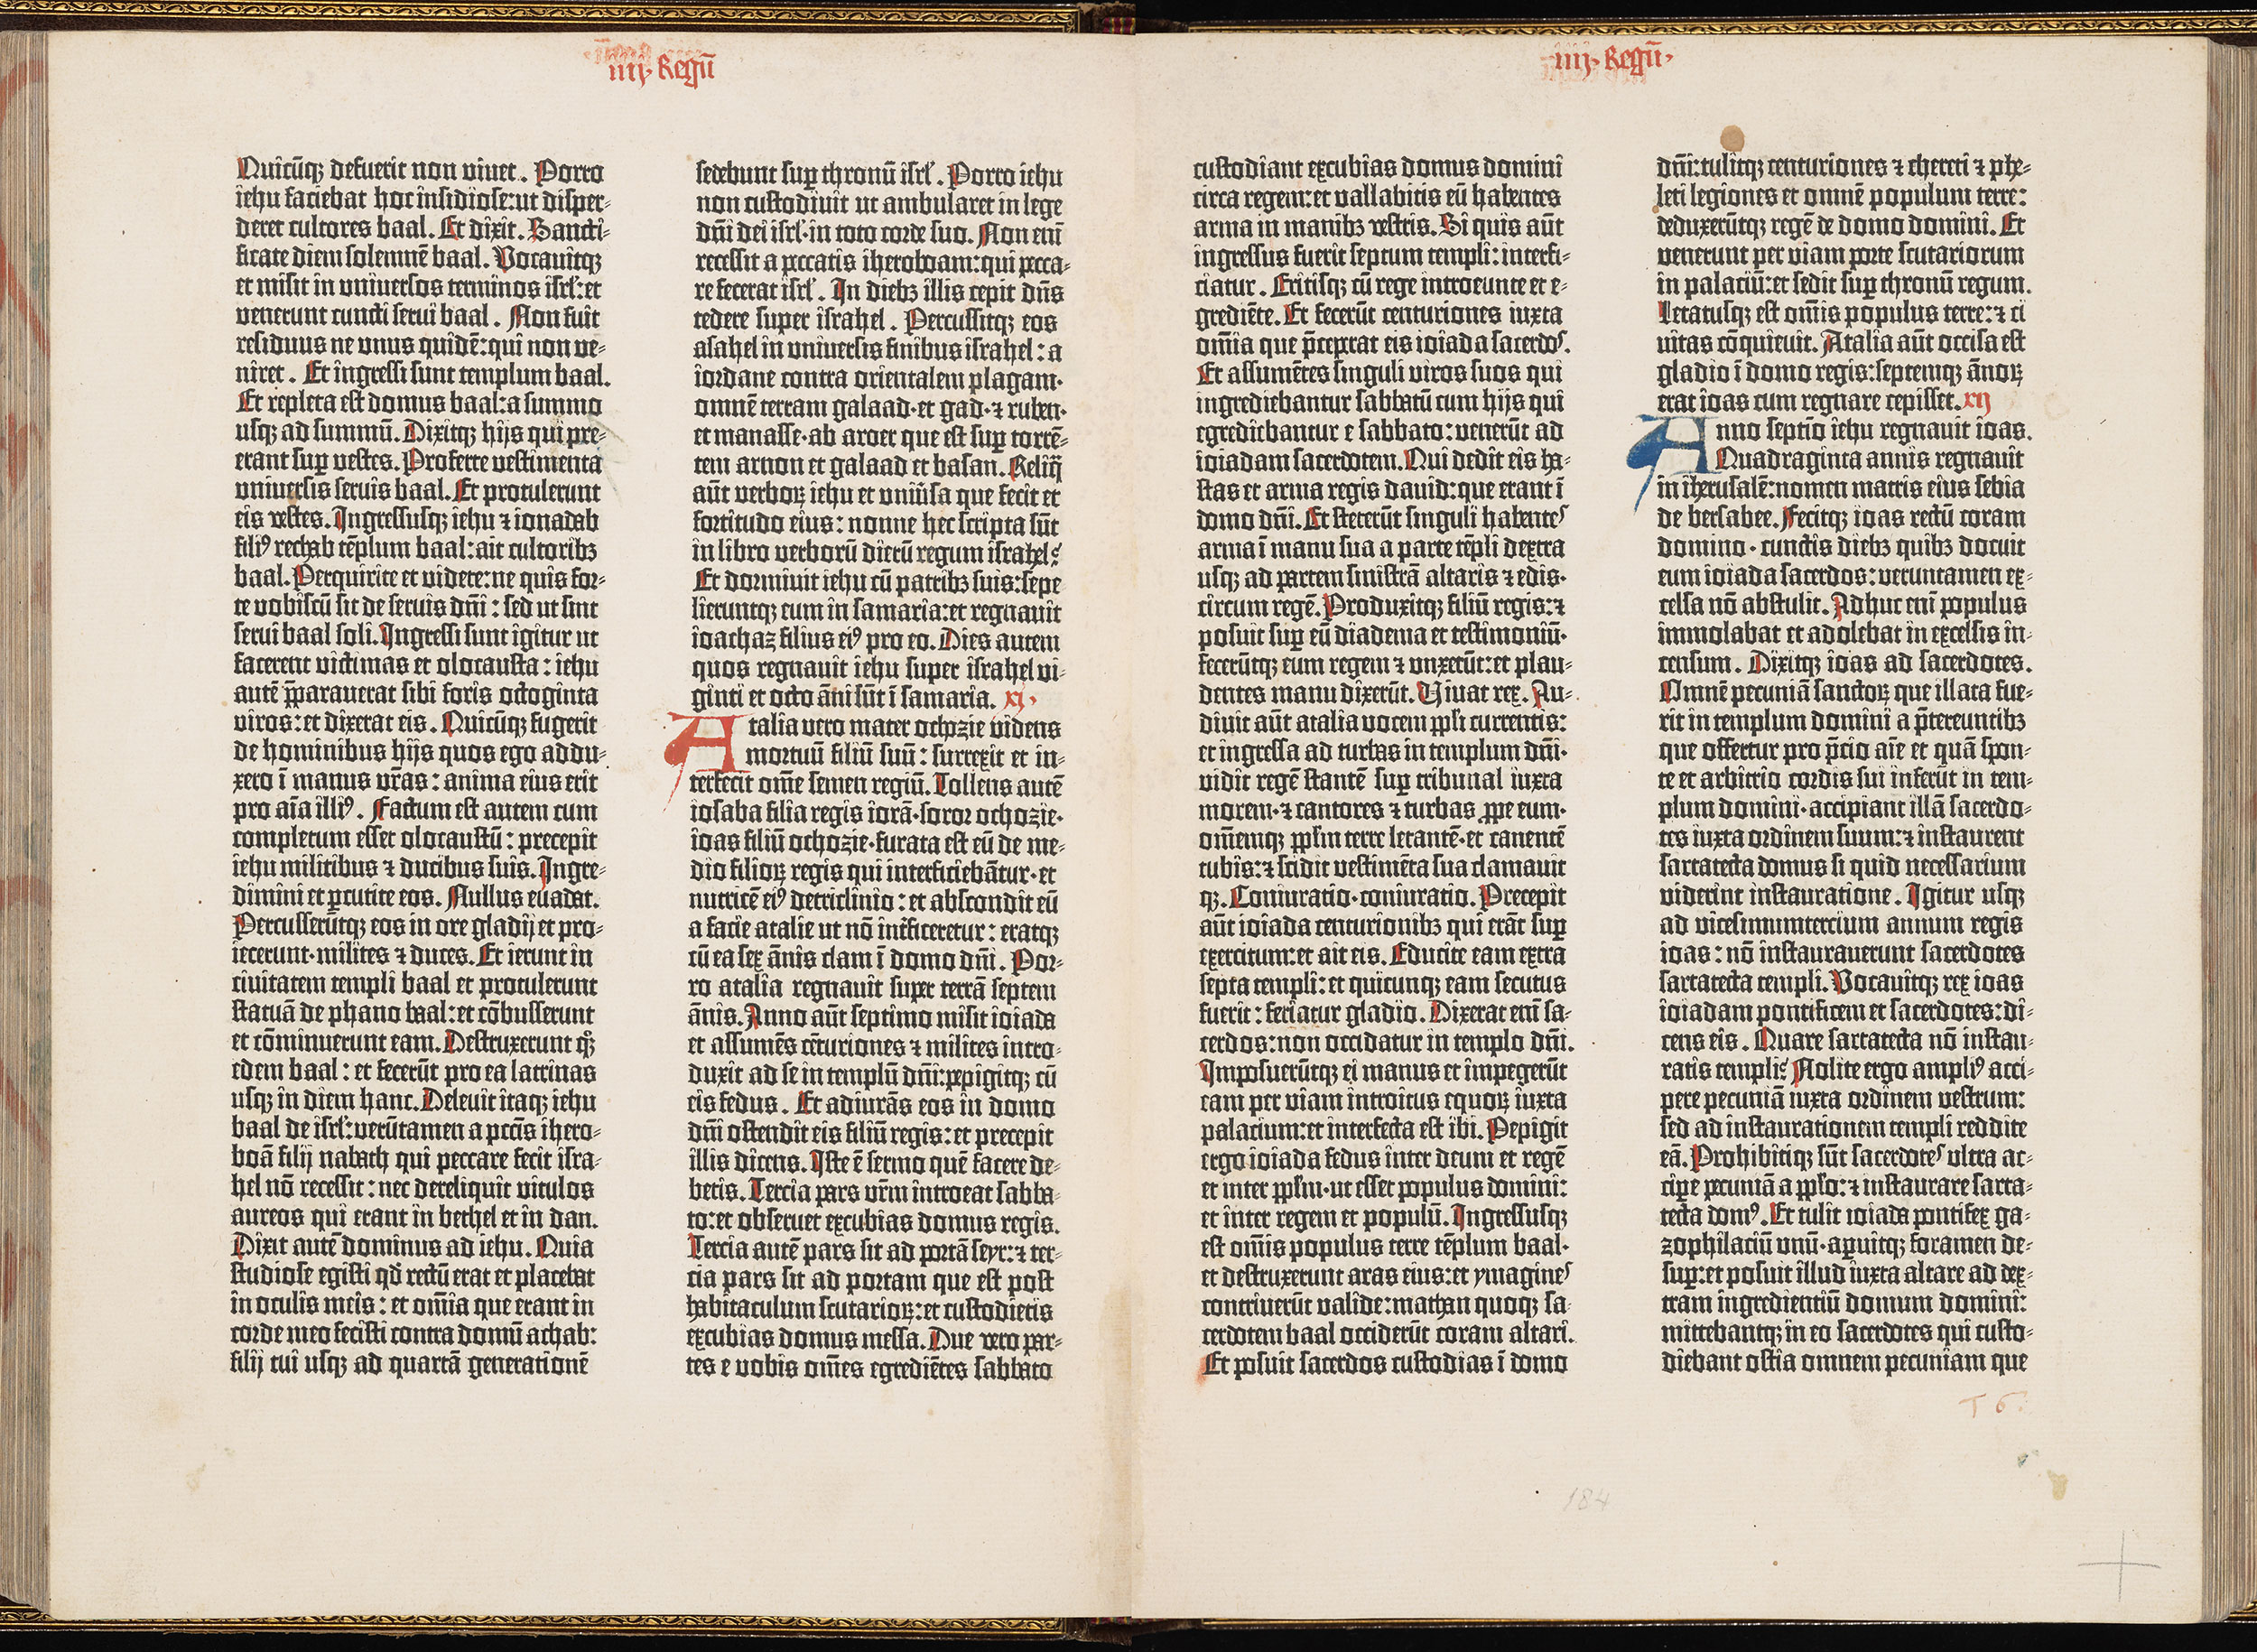 iiij. Regū
Quicūqꝫ defuerit non viuet. Porro
iehu faciebat hoc insidiose: ut disper-
deret cultores baal. Et dixit. Sancti-
ficate diem solemnē baal. Vocauitqꝫ
et misit in uniuersos terminos isrl': et
venerunt cuncti serui baal. Non fuit
residuus ne unus quidē: qui non ve-
niret. Et ingressi sunt templum baal.
Et repleta est domus baal: a summo
usqꝫ ad summū. Dixitqꝫ hijs qui pre-
erant sup vestes. Proferte vestimenta
uniuersis seruis baal. Et protulerunt
eis vestes. Ingressusqꝫ iehu ⁊ ionadab
filiꝰ rechab tēplum baal: ait cultoribꝫ
baal. Perquirite et videte: ne quis for-
te vobiscū sit de seruis dn̄i: sed ut sint
serui baal soli. Ingressi sunt igitur ut
facerent victimas et olocausta: iehu
autē p̄pararauerat sibi foris octoginta
viros: et dixerat eis. Quicūqꝫ fugerit
de hominibus hijs quos ego addu-
xero ī manus vr̄as: anima eius erit
pro aīa illiꝰ. Factum est autem cum
completum esset olocaustū: precepit
iehu militibus ⁊ ducibus suis. Ingre-
dimini et ꝑcutite eos. Nullus euadat.
Percusserūtqꝫ eos in ore gladij et pro-
iecerunt· milites ⁊ duces. Et ierunt in
ciuitatem templi baal et protulerunt
statuā de phano baal: et cōbusserunt
et cōminuerunt eam. Destruxerunt qꝫ
edem baal: et fecerūt pro ea latrinas
usqꝫ in diem hanc. Deleuit itaqꝫ iehu
baal de isrl': verūtamen a pcc̄is ihero-
boā filij nabath qui peccare fecit isra-
hel nō recessit: nec dereliquit vitulos
aureos qui erant in bethel et in dan.
Dixit autē dominus ad iehu. Quia
studiose egisti qđ rectū erat et placebat
in oculis meis: et om̄ia que erant in
corde meo fecisti contra domū achab:
filij tui usqꝫ ad quartā generationē
sedebunt sup thronū isrl'. Porro iehu
non custodiuit ut ambularet in lege
dn̄i dei isrl'· in toto corde suo. Non enī
recessit a peccatis iheroboam: qui pecca-
re fecerat isrl'. In diebꝫ illis cepit dn̄s
tedere super israhel. Percussitqꝫ eos
asahel in uniuersis finibus israhel: a
iordane contra orientalem plagam·
omnē terram galaad· et gad· ⁊ ruben·
et manasse· ab aroer que est sup torrē-
tem arnon et galaad et basan. Reliq̄
aūt verboꝝ iehu et uniūsa que fecit et
fortitudo eius: nonne hec scripta sūt
in libro verborū dierū regum israhel?
Et dormiuit iehu cū patribꝫ suis: sepe
lieruntqꝫ eum in samaria: et regnauit
ioachaz filius eiꝰ pro eo. Dies autem
quos regnauit iehu super israhel vi-
ginti et octo āni sūt ī samaria. xj.
Atalia vero mater ochozie videns
mortuū filiū suū: surrexit et in-
terfecit om̄e semen regiū. Tollens autē
iosaba filia regis iorā· soror ochozie·
ioas filiū ochozie· furata est eū de me-
dio filioꝝ regis qui interficiebātur· et
nutricē eiꝰ detriclinio: et abscondit eū
a facie atalie ut nō intficeretur: eratqꝫ
cū ea sex ānis clam ī domo dn̄i. Por-
ro atalia regnauit super terrā septem
ānis. Anno aūt septimo misit ioiada
et assumēs cēturiones ⁊ milites intro-
duxit ad se in templū dn̄i: pepigitqꝫ cū
eis fedus. Et adiurās eos in domo
dn̄i ostendit eis filiū regis: et precepit
illis dicens. Iste ē sermo quē facere de-
betis. Tercia pars vr̄m introeat sabba-
to: et obseruet excubias domus regis.
Tercia autē pars sit ad portā seyr: ⁊ ter-
cia pars sit ad portam que est post
habitaculum scutarioꝝ: et custodietis
excubias domus messa. Due vero par-
tes e vobis om̄es egrediētes sabbato
iiij. Regū.
custodiant excubias domus domini
circa regem: et vallabitis eū habentes
arma in manibꝫ vestris. Si quis aūt
ingressus fuerit septum templi: interfi-
ciatur. Eritisqꝫ cū rege introeunte et e-
grediēte. Et fecerūt centuriones iuxta
om̄ia que p̄ceperat eis ioiada sacerdos.
Et assumētes singuli viros suos qui
ingrediebantur sabbatū cum hijs qui
egrediebantur e sabbato: venerūt ad
ioiadam sacerdotem. Qui dedit eis ha-
stas et arma regis dauid: que erant ī
domo dn̄i. Et steterūt singuli habentes
arma ī manu sua a parte tēpli dextra
usqꝫ ad partem sinistrā altaris ⁊ edis·
circum regē. Produxitqꝫ filiū regis: ⁊
posuit sup eū diadema et testimoniū·
fecerūtqꝫ eum regem ⁊ unxerūt: et plau-
dentes manu dixerūt. Viuat rex. Au-
diuit aūt atalia vocem ppl̄i currentis:
et ingressa ad turbas in templum dn̄i·
vidit regē stantē sup tribunal iuxta
morem· ⁊ cantores ⁊ turbas ꝓpe eum·
om̄emqꝫ ppl̄m terre letantē· et canentē
tubis: ⁊ scidit vestimēta sua clamauit
qꝫ. Coniuratio· coniuratio. Precepit
aūt ioiada centurionibꝫ qui erāt sup
exercitum: et ait eis. Educite eam extra
septa templi: et quicunqꝫ eam secutus
fuerit: feriatur gladio. Dixerat enī sa-
cerdos: non occidatur in templo dn̄i.
Imposuerūtqꝫ ei manus et impegerūt
eam per viam introitus equoꝝ iuxta
palacium: et interfecta est ibi. Pepigit
ergo ioiada fedus inter deum et regē
et inter ppl̄m· ut esset populus domini:
et inter regem et populū. Ingressusqꝫ
est om̄is populus terre tēplum baal·
et destruxerunt aras eius: et ymagines
contriuerūt valide: mathan quoqꝫ sa-
cerdotem baal occiderūt coram altari.
Et posuit sacerdos custodias ī domo
dn̄i: tulitqꝫ centuriones ⁊ cherethi ⁊ phe-
leti legiones et omnē populum terre:
deduxerūtqꝫ regē de domo domini. Et
venerunt per viam porte scutariorum
in palaciū: et sedit sup thronū regum.
Letatusqꝫ est om̄is populus terre: ⁊ ci
uitas cōquieuit. Atalia aūt occisa est
gladio ī domo regis: septemqꝫ ānoꝝ
erat ioas cum regnare cepisset. xij
Anno septīo iehu regnauit ioas.
Quadraginta annis regnauit
in iherusalē: nomen matris eius sebia
de bersabee. Fecitqꝫ ioas rectū coram
domino· cunctis diebꝫ quibꝫ docuit
eum ioiada sacerdos: veruntamen ex-
celsa nō abstulit. Adhuc enī populus
immolabat et adolebat in excelsis in-
censum. Dixitqꝫ ioas ad sacerdotes.
Omnē pecuniā sanctoꝝ que illata fue-
rit in templum domini a p̄tereuntibꝫ
que offertur pro p̄cio aīe et quā spon-
te et arbitrio cordis sui inferūt in tem-
plum domini· accipiant illā sacerdo-
tes iuxta ordinem suum: ⁊ instaurent
sartatecta domus si quid necessarium
viderint instauratione. Igitur usqꝫ
ad vicesimumtercium annum regis
ioas: nō instaurauerunt sacerdotes
sartatecta templi. Vocauitqꝫ rex ioas
ioiadam pontificem et sacerdotes: di-
cens eis. Quare sartatecta nō instau-
ratis templi? Nolite ergo ampliꝰ acci-
pere pecuniā iuxta ordinem vestrum:
sed ad instaurationem templi reddite
eā. Prohibitiqꝫ sūt sacerdotes ultra ac-
cipe pecuniā a pplo: ⁊ instaurare sarta-
tecta domꝰ. Et tulit ioiada pontifex ga-
zophilaciū unū· aperuitqꝫ foramen de-
sup: et posuit illud iuxta altare ad dex-
tram ingredientiū domum domini:
mittebantqꝫ in eo sacerdotes qui custo-
diebant ostia omnem pecuniam que
T 6.
184